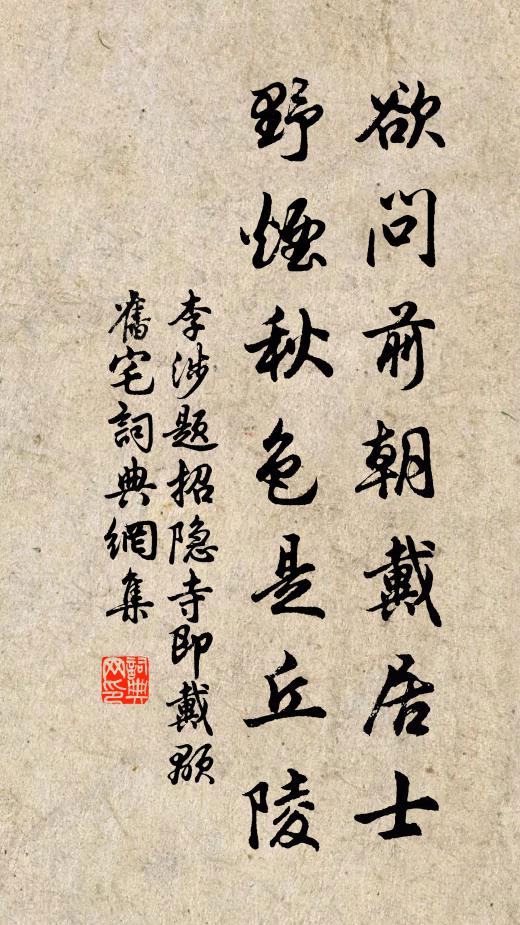 欲问前朝戴居士
野煙秋色是丘陵
李涉题招隐寺即戴顒
舊宅詞典網集
詞典网印